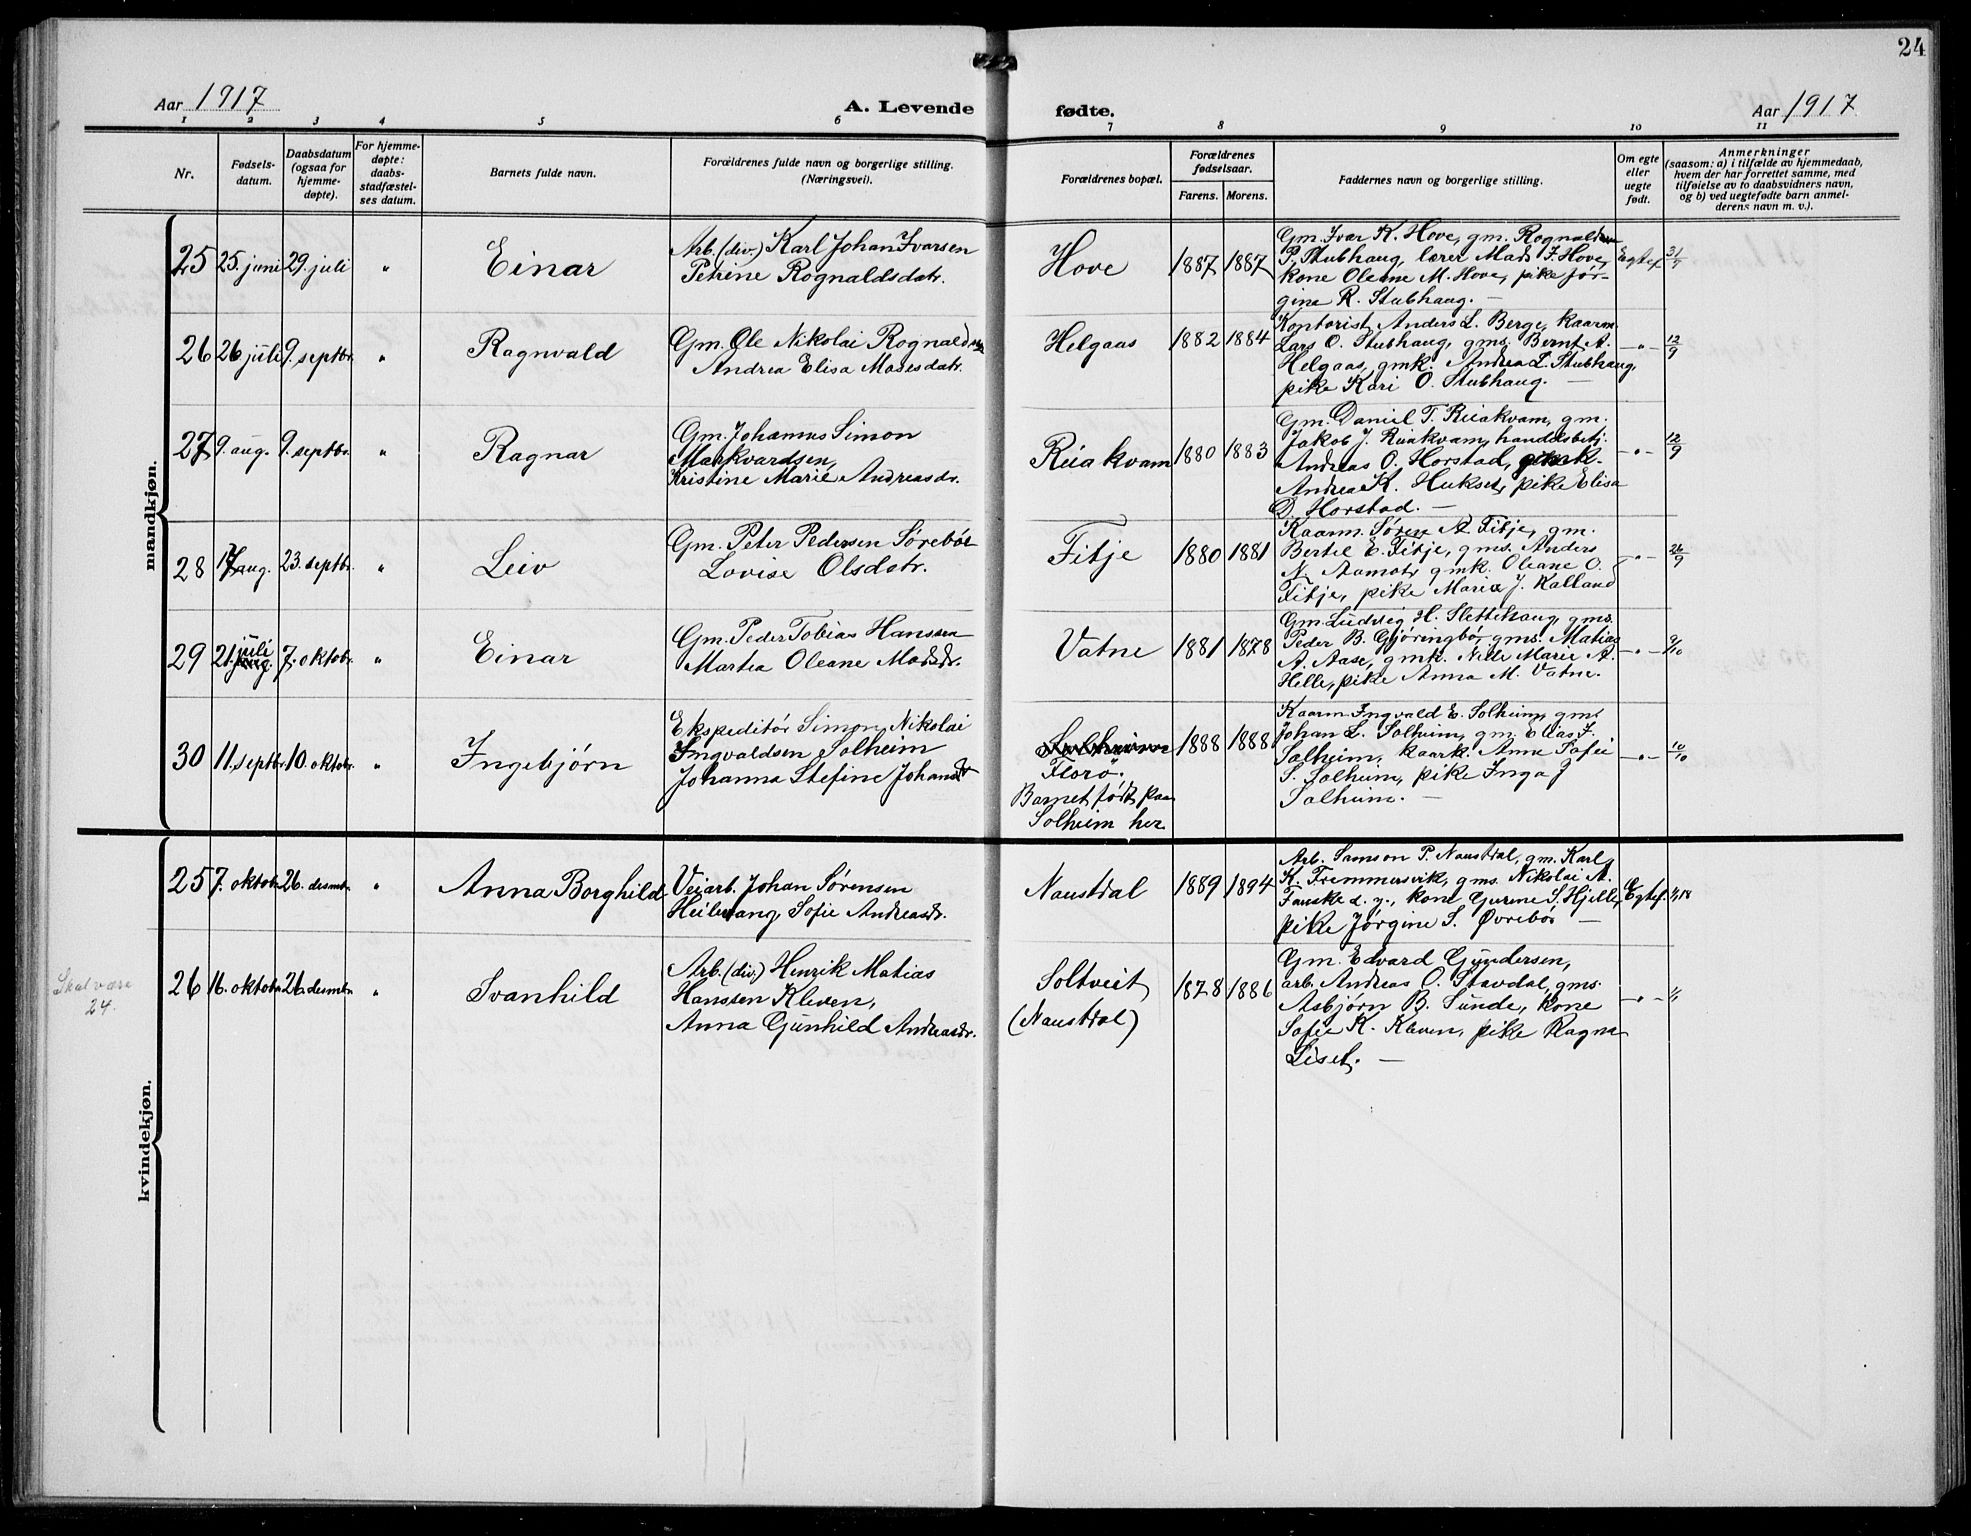 24
Aar 1917
A. Levende
fødte.
Aar 1917
1 2 3 4 5 6 7 8 9 10 11
Nr.
Fødsels-
datum.
Daabsdatum
(ogsaa for
hjemme-
døpte).
For hjemme-
døpte:
daabs-
stadfæstel-
ses datum.
Barnets fulde navn.
Forældrenes fulde navn og borgerlige stilling.
(Næringsvei).
Forældrenes bopæl.
Forældrenes
fødselsaar.
Farens. Morens.
Faddernes navn og borgerlige stilling.
Om egte
eller
uegte
født.
Anmerkninger
(saasom: a) i tilfælde av hjemmedaab,
hvem der har forrettet samme, med
tilføielse av to daabsvidners navn,
og b) ved uegtefødte barn anmel-
derens navn m. v.).
mandkjøn.
25 25. juni 29. juli "
Einar
Arb. (div.) Karl Johan Ivarsen
Petrine Rognaldsdatr.
Hove
1887 1887
Gm. Ivar K. Hove, gm. Rognald
P. Stubhaug, lærer Mads J. Hove,
kone Oleane M. Hove, pike Jør-
gina R. Stubhaug. —
Egtef.
26 26 juli 9. septbr. "
Ragnvald
Gm. Ole Nikolai Rognaldsen
Andrea Elisa Mosesdatr.
Helgaas
1882 1884
Kontorist Anders L. Berge, kaarm.
Lars O. Stubhaug, gms. Bernt A.
Helgaas, gmk. Andrea L. Stubhaug,
pike Kari O. Stubhaug. —
—"— 12/9
27 9. aug. 9. septbr. "
Ragnar
Gm. Johannes Simon
Markvardsen,
Kristine Marie Andreasdr.
Reiakvam
1880 1883
Gm. Daniel T. Reiakvam, gm.
Jakob J. Reiakvam, handelsbetj.
Andreas O. Horstad, gmk.
Andrea K. Hukset, pike Elisa
D. Horstad. —
—"— 12/9
28 17 aug. 23. septbr. "
Leiv
Gm. Peter Pedersen Sørebøe
Lovise Olsdatr.
Fitje
1880 1881
Kaarm. Søren A. Fitje, gm.
Bertel E. Fitje, gms. Anders
N. Aamot, gmk. Oleane O.
Fitje, pike Maria J. Kalland
—"— 26/9
29 21. juli 7. oktobr. "
Einar
Gm. Peder Tobias Hanssen
Martea Oleane Madsdr.
Vatne
1881 1878
Gm. Ludvig H. Slettehaug, gms.
Peder B. Gjørengbø, gms. Matias
A. Aase, gmk. Nille Marie A.
Helle, pike Anna M. Vatne.
—"— 9/10
30 11. septbr. 10. oktobr. "
Ingebjørn
Ekspeditør Simon Nikolai
Ingvaldsen Solheim
Johanna Stefine Johansdr
Solheim
Florø.
Barnet født paa
Solheim her
1888 1888
Kaarm. Ingvald E. Solheim, gms
Johan L. Solheim, gm. Elias J.
Solheim, kaark. Anne Sofie
S. Solheim, pike Inga J
Solheim. —
—"— 10/10
kvindekjøn.
25 7. oktobr. 26. desmbr. "
Anna Borghild
Veiarb. Johan Sørensen
Heilevang, Sofie Andreasdr.
Naustdal
1889 1894
Arb. Samson P. Naustdal, gm. Karl
K. Fremmersvik, gms. Nikolai A.
Fauske d. y., kone Gurine S. Hjelle,
pike Jørgine S. Øvrebø —
Egtef.
Skal være
24.
26 16. oktobr. 26. desmbr. "
Svanhild
Arb. (div.) Henrik Matias
Hanssen Kleven,
Anna Gunhild Andreasdr.
Soltveit
(Naustdal)
1878 1886
Gm. Edvard Gundersen,
arb. Andreas O. Stavdal, gms.
Asbjørn B. Sunde, kone
Sofie K. Kleven, pike Ragna
Liset. —
—"—